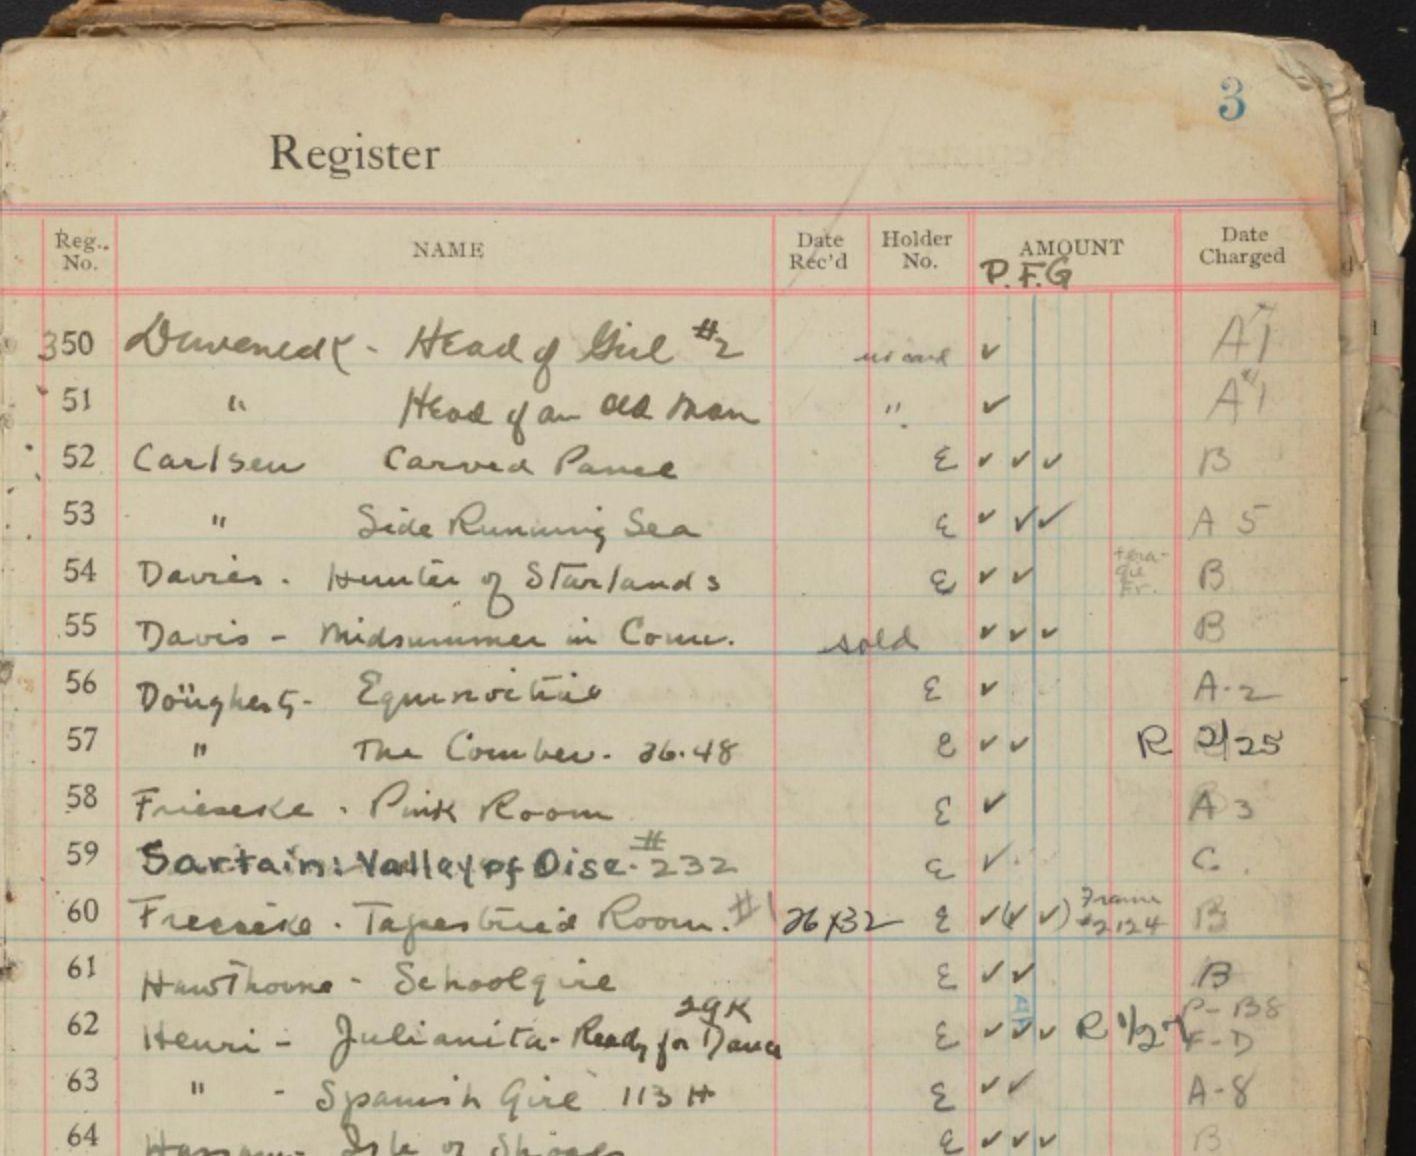 3
Register
Reg. No. NAME Date Rec'd Holder No. AMOUNT Date Charged
P.F.G
350 Duveneck - Head of Girl #2 no card ✓ A1
51 " Head of an Old Man " ✓ A1
52 Carlsen Carved Panel E ✓ ✓ ✓ B
53 " Side Running Sea E ✓ ✓ ✓ A 5
54 Davies - Hunter of Starlands E ✓ ✓ Fr. B
55 Davis - Midsummer in Conn. sold ✓ ✓ ✓ B
56 Dougherty - E ✓ A-2
57 " The Comber - 36.48 E ✓ ✓ R 2/25
58 Frieseke - Pink Room E ✓ A 3
59 Sartain: Valley of Oise - #232 E ✓ C.
60 Frieseke - Tapestried Room. #1 26x32 E ✓(✓ ✓) Frame #2124 B
61 Hawthorne - Schoolgirl E ✓ ✓ B
62 Henri - Julianita - Ready for Dance 29K E ✓ ✓ ✓ R 1/27 P-B8 F-D
63 " - Spanish Girl 113 H E ✓ ✓ A-8
64 Hassam - Isle of Shoals E ✓ ✓ ✓ B